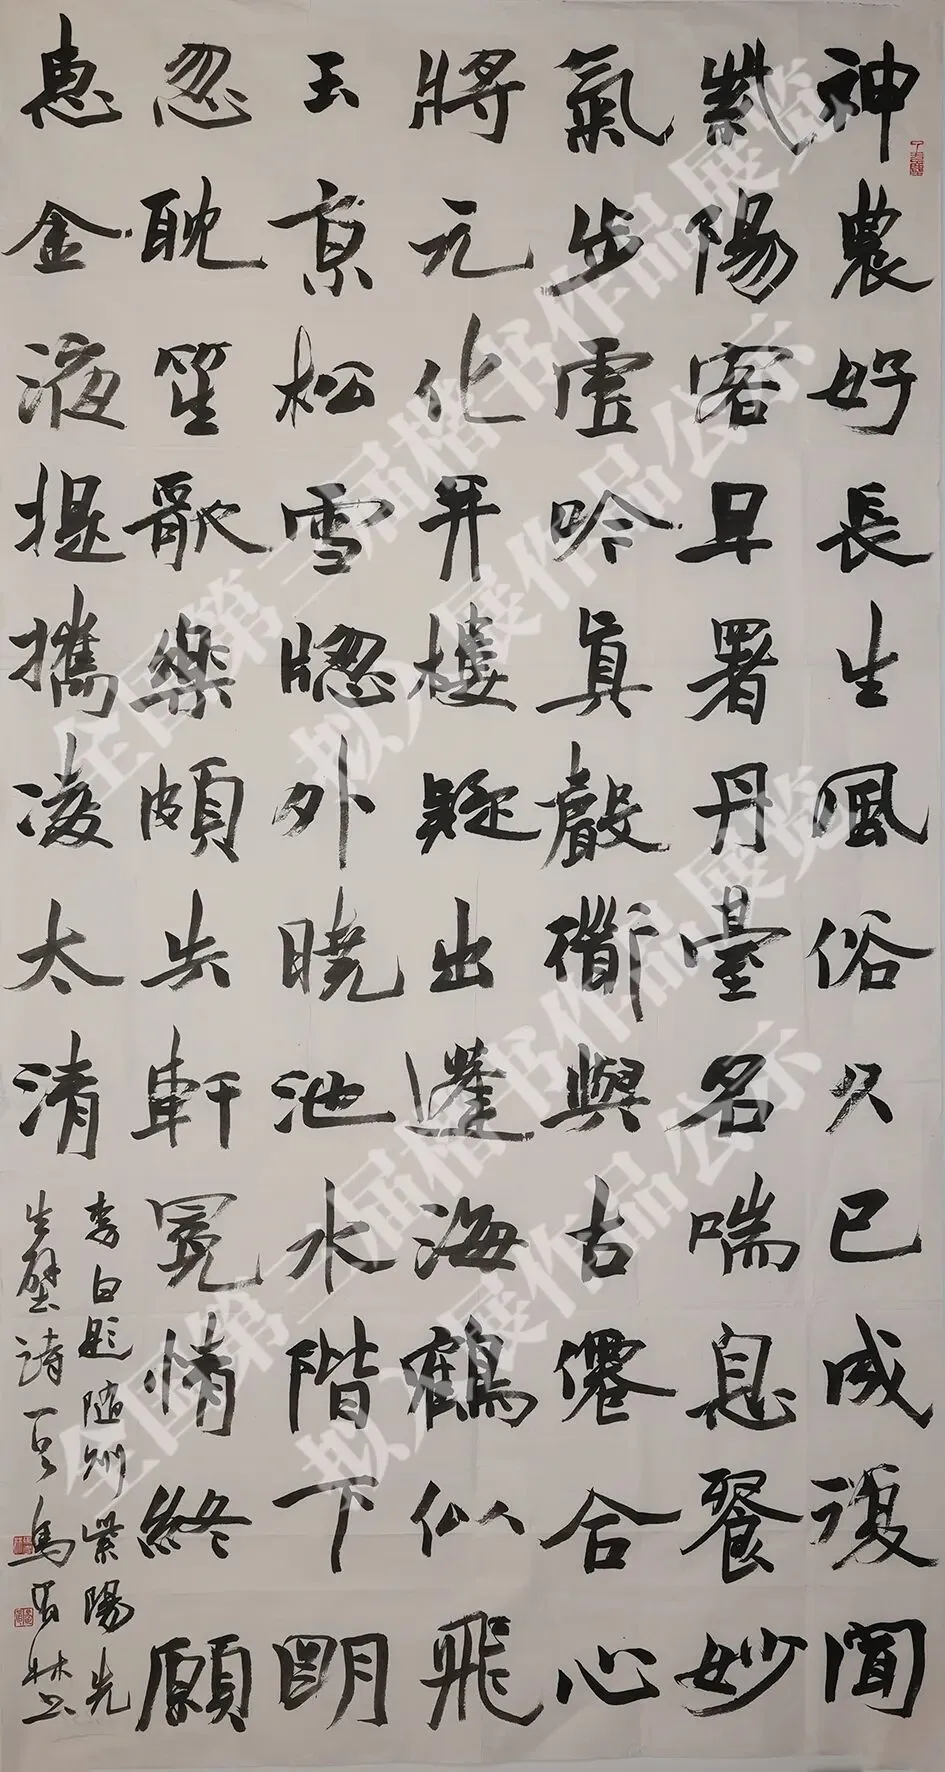 神農好長生風俗久已成復聞
紫陽客早署丹臺名喘息餐妙
氣步虛吟真聲衜與古僊合心
將元化并樓疑出蓬海鶴似飛
玉京松雪牕外曉池水階下明
忽耽笙歌樂頗失軒冕情終願
惠金液提攜凌太清
李白題隨州紫陽先
生壁詩一首馬
全国第三届楷书作品展览
拟入展作品公示
全国第三届楷书作品展览
拟入展作品公示